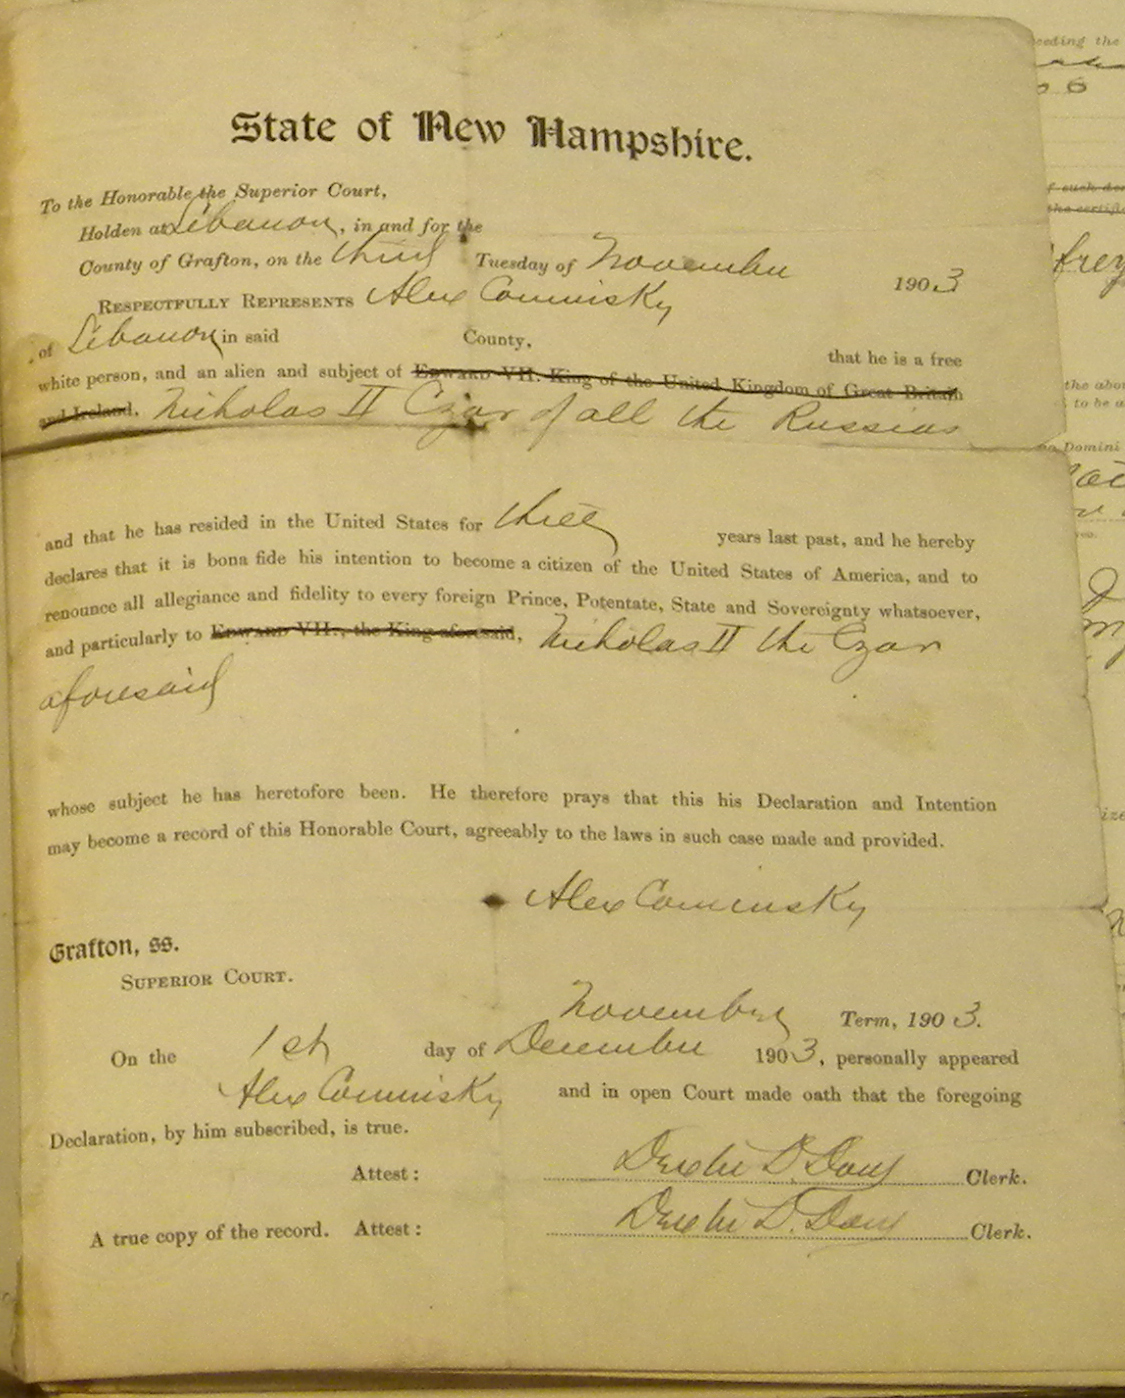 State of New Hampshire.
To the Honorable the Superior Court,
Holden at Lebanon, in and for the
County of Grafton, on the third Tuesday of November 1903
RESPECTFULLY REPRESENTS Alex Cominsky
of Lebanon in said County, that he is a free
white person, and an alien and subject of Edward VII. King of the United Kingdom of Great Britain
and Ireland. Nicholas II Czar of all the Russias
and that he has resided in the United States for three years last past, and he hereby
declares that it is bona fide his intention to become a citizen of the United States of America, and to
renounce all allegiance and fidelity to every foreign Prince, Potentate, State and Sovereignty whatsoever,
and particularly to Edward VII., the King aforesaid, Nicholas II the Czar
aforesaid
whose subject he has heretofore been. He therefore prays that this his Declaration and Intention
may become a record of this Honorable Court, agreeably to the laws in such case made and provided.
Alex Cominsky
Grafton, ss.
SUPERIOR COURT.
November Term, 1903.
On the 1st day of December 1903, personally appeared
Alex Cominsky and in open Court made oath that the foregoing
Declaration, by him subscribed, is true.
Attest: Dexter D. Dow Clerk.
A true copy of the record. Attest: Dexter D. Dow Clerk.
eeding the
6
the abov
to be a
Domini